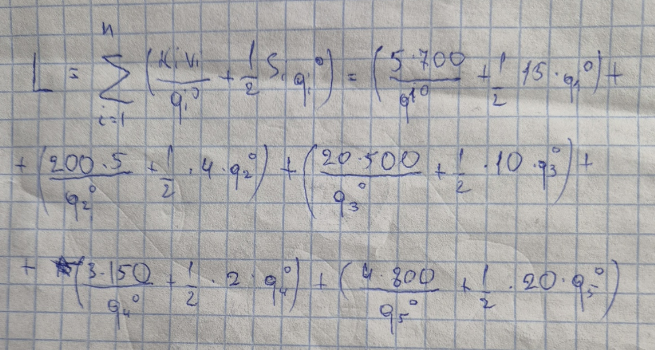 L = ∑ⁿᵢ₌₁ (KᵢVᵢ/qᵢ⁰ + 1/2 Sᵢ qᵢ⁰) = (5·700/q₁⁰ + 1/2 15·q₁⁰) +
+ (200·5/q₂⁰ + 1/2 ·4·q₂⁰) + (20·500/q₃⁰ + 1/2 ·10·q₃⁰) +
+ (3·150/q₄⁰ + 1/2 ·2·q₄⁰) + (4·800/q₅⁰ + 1/2 ·20·q₅⁰)